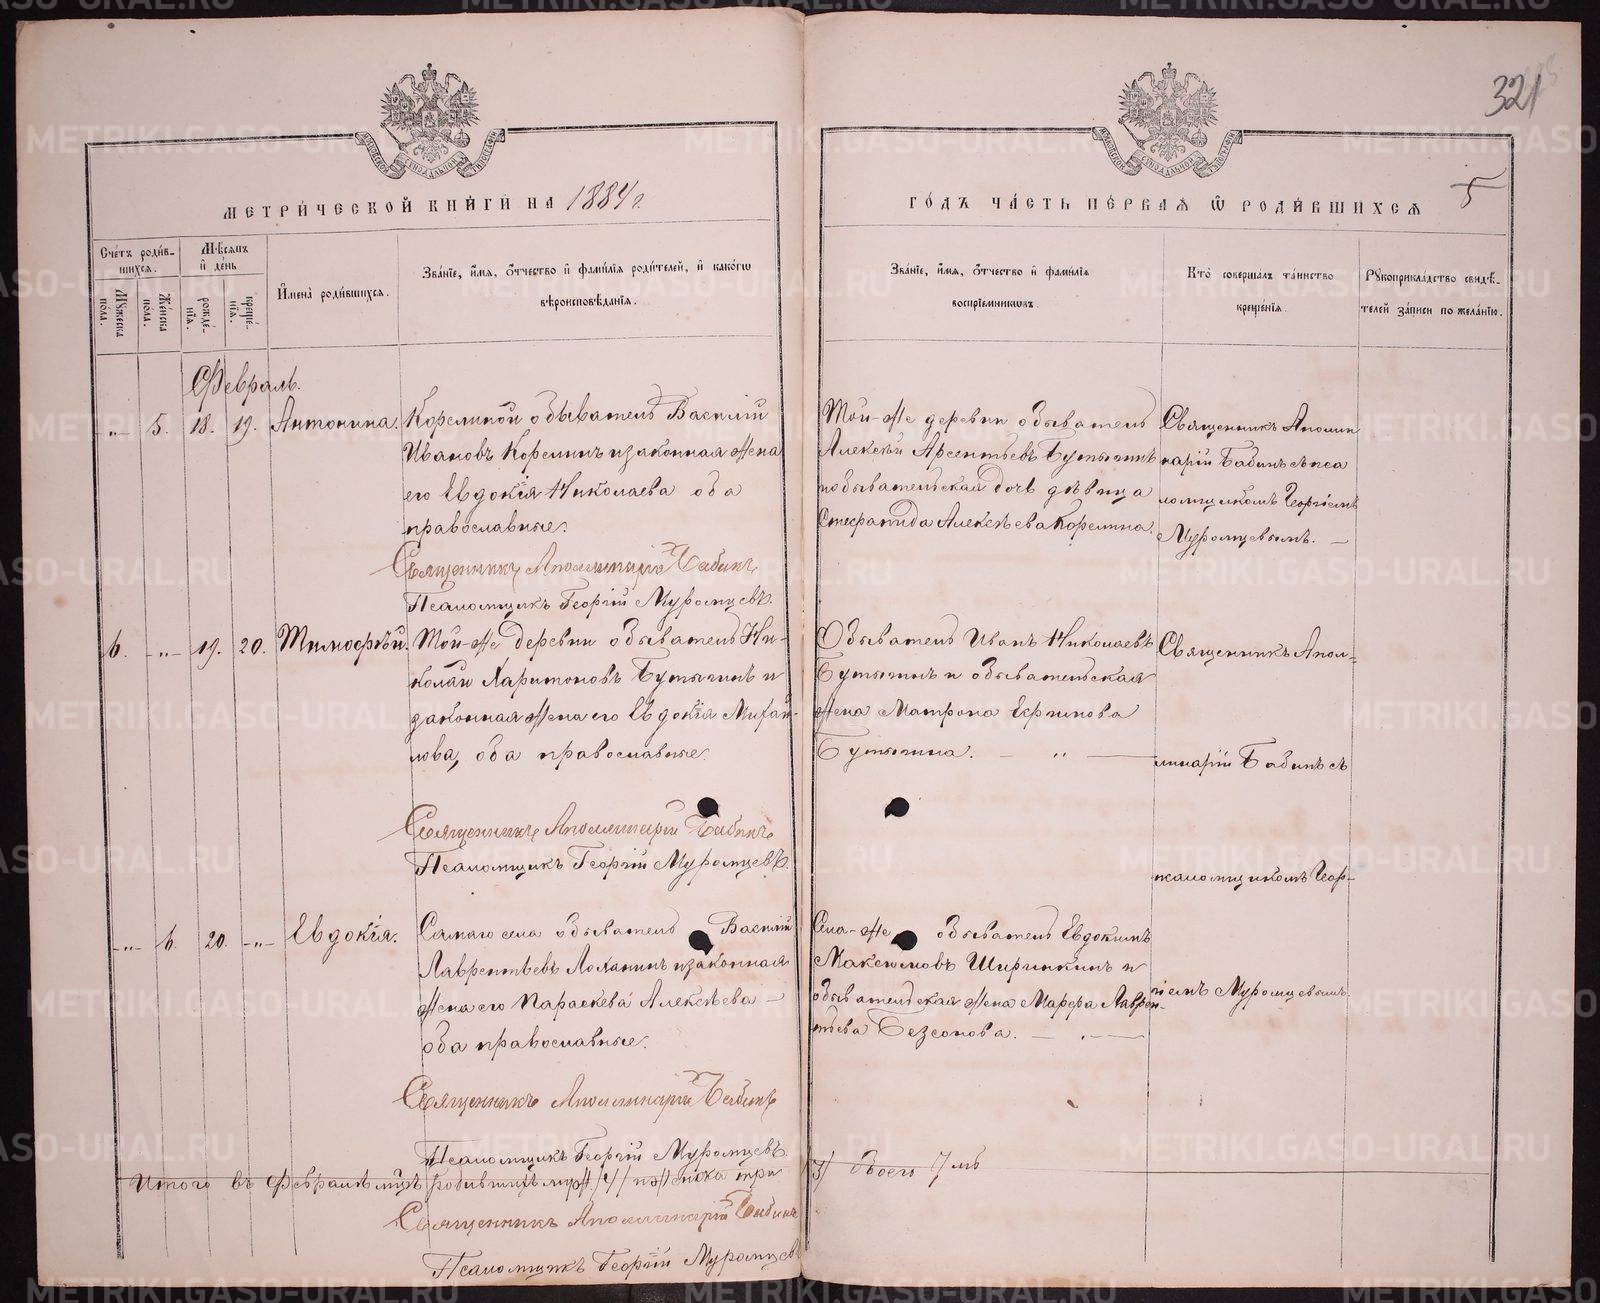 321
5
МЕТРИЧЕСКОЙ КНИГИ НА 1884 г.
ГОДЪ ЧАСТЬ ПЕРВАЯ Ѡ РОДИВШИХСЯ
Счетъ родив-
шихся.
Мужеска пола.
Женска пола.
Мѣсяцъ и день
рожде-
нія.
креще-
нія.
Имена родившихся.
Званіе, имя, отчество и фамилія родителей, и какогѡ
вѣроисповѣданія.
Званіе, имя, отчество и фамилія
воспріемниковъ.
Кто совершалъ таинство
крещенія.
Рукоприкладство свидѣ-
телей записи по желанію.
Февраль.
-„- 5. 18. 19. Антонина.
Корелиной обыватель Василій
Ивановъ Корелинъ и законная жена
его Евдокія Николаева оба
православные.
Священникъ Аполлинарій Бабинъ
Псаломщикъ Георгій Муромцевъ.
Той-же деревни обыватель
Алексѣй Арсентьевъ Бутыгинъ
и обывательская дочь дѣвица
Алексѣева Корелина.
Священникъ Аполли
нарій Бабинъ съ пса
ломщикомъ Георгіемъ
Муромцевымъ. —
6. -„- 19. 20. Тимофѣй.
Той-же деревни обыватель Ни-
колай Харитоновъ Бутыгинъ и
законная жена его Евдокія Михай-
лова, оба православные.
Священникъ Аполлинарій Бабинъ
Псаломщикъ Георгій Муромцевъ.
Обыватель Иванъ Николаевъ
Бутыгинъ и обывательская
жена Матрона
Бутыгина. — „ —
Священникъ Апол-
линарій Бабинъ съ
псаломщикомъ Геор-
гіемъ Муромцевымъ.
-„- 6. 20. -„- Евдокія.
Самаго села обыватель Василій
Лаврентьевъ Лоханинъ и законная
жена его Параскева Алексѣева —
оба православные.
Священникъ Аполлинарій Бабинъ
Псаломщикъ Георгій Муромцевъ.
Села-же обыватель Евдокимъ
Максимовъ Ширинкинъ и
обывательская жена Марфа Лаврен-
тьева Безсонова. —
Итого въ Февралѣ мцѣ родившихъ муж /4/ и женска три
/3/ всего 7мь
Священникъ Аполлинарій Бабинъ
Псаломщикъ Георгій Муромцевъ
METRIKI.GASO-URAL.RU